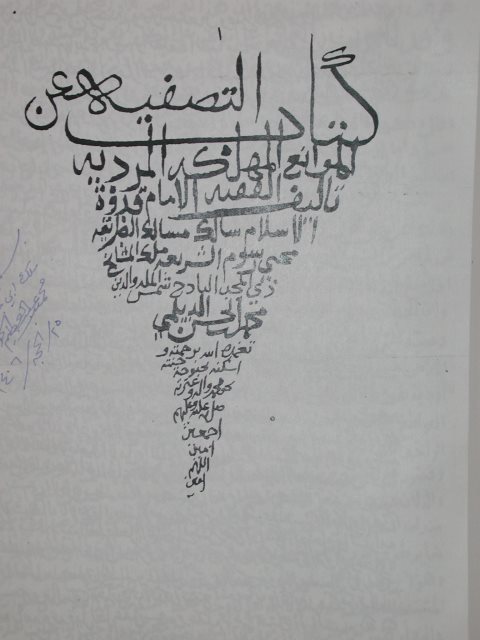 ١
كتاب التصفيه عن
الموانع المهلكه المرديه
تاليف الفقيه الامام قدوة
الاسلام سالك مسالك الطريقه
محيي رسوم الشريعه
ذي المجد الباذخ شمس المله والدين
محمد بن الحسن الديلمي
تغمده الله برحمته و
اسكنه بحبوحة جنته
بمحمد واله وعترته
صلى الله عليه وعليهم
اجمعين
امين
اللهم
امين